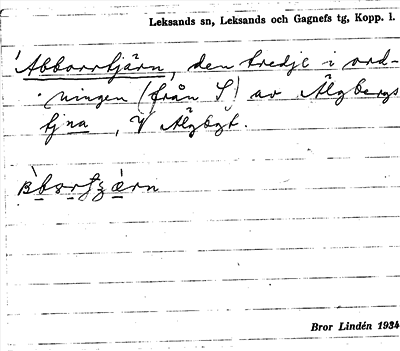 Leksands sn, Leksands och Gagnefs tg, Kopp. l.
Abborrtjärn, den tredje i ord-
ningen (från S) av Älgbergs
tjna, V Älgbgt.
Bror Lindén 1934